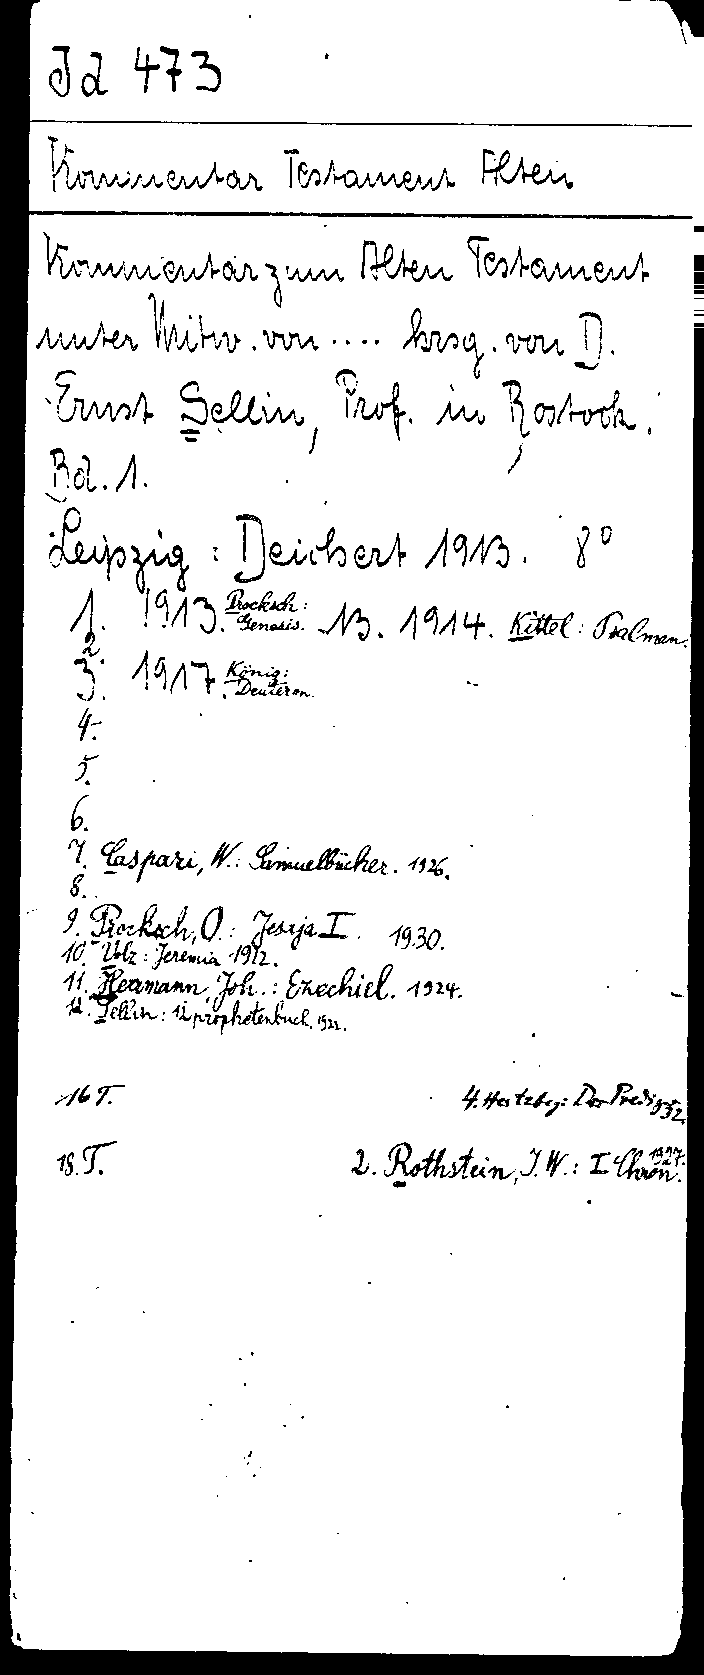 Id 473
Kommentar Testament Alten
Kommentar zum Alten Testament
unter Mitw. von .... hrsg. von D.
Ernst Sellin, Prof. in Rostock.
Bd. 1.
Leipzig : Deichert 1913. 8°
1. 1913. Procksch: Genesis. 13. 1914. Kittel: Psalmen.
2.
3. 1917. König: Deuteron.
4.
5.
6.
7. Caspari, W.: Samuelbücher. 1926.
8.
9. Procksch, O.: Jesaja I. 1930.
10. Volz: Jeremia 1922.
11. Herrmann, Joh.: Ezechiel. 1924.
12. Sellin: 12 prophetenbuch. 1922.
16 T. 4. Hertzbg: Der Predig 32.
18. T. 2. Rothstein, J. W.: I Chron. 1927.